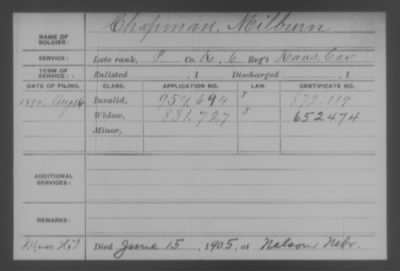 NAME OF SOLDIER: Chapman, Milburn
SERVICE: Late rank, P Co. K, 6 Reg't Kans. Cav
TERM OF SERVICE: Enlisted , 1 Discharged , 1
DATE OF FILING. CLASS. APPLICATION NO. LAW. CERTIFICATE NO.
1890 Aug Invalid, 954,694 872,119
Widow, 831,727 652474
Minor,
ADDITIONAL SERVICES:
REMARKS:
Died June 15, 1905, at Nelson Nebr.